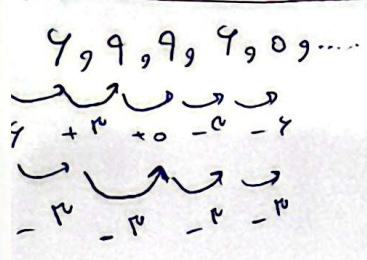 ۶ , ۹ , ۹ , ۶ , ۰ , .....
۶ +۳ +۰ -۳ -۶
-۳ -۳ -۳ -۳